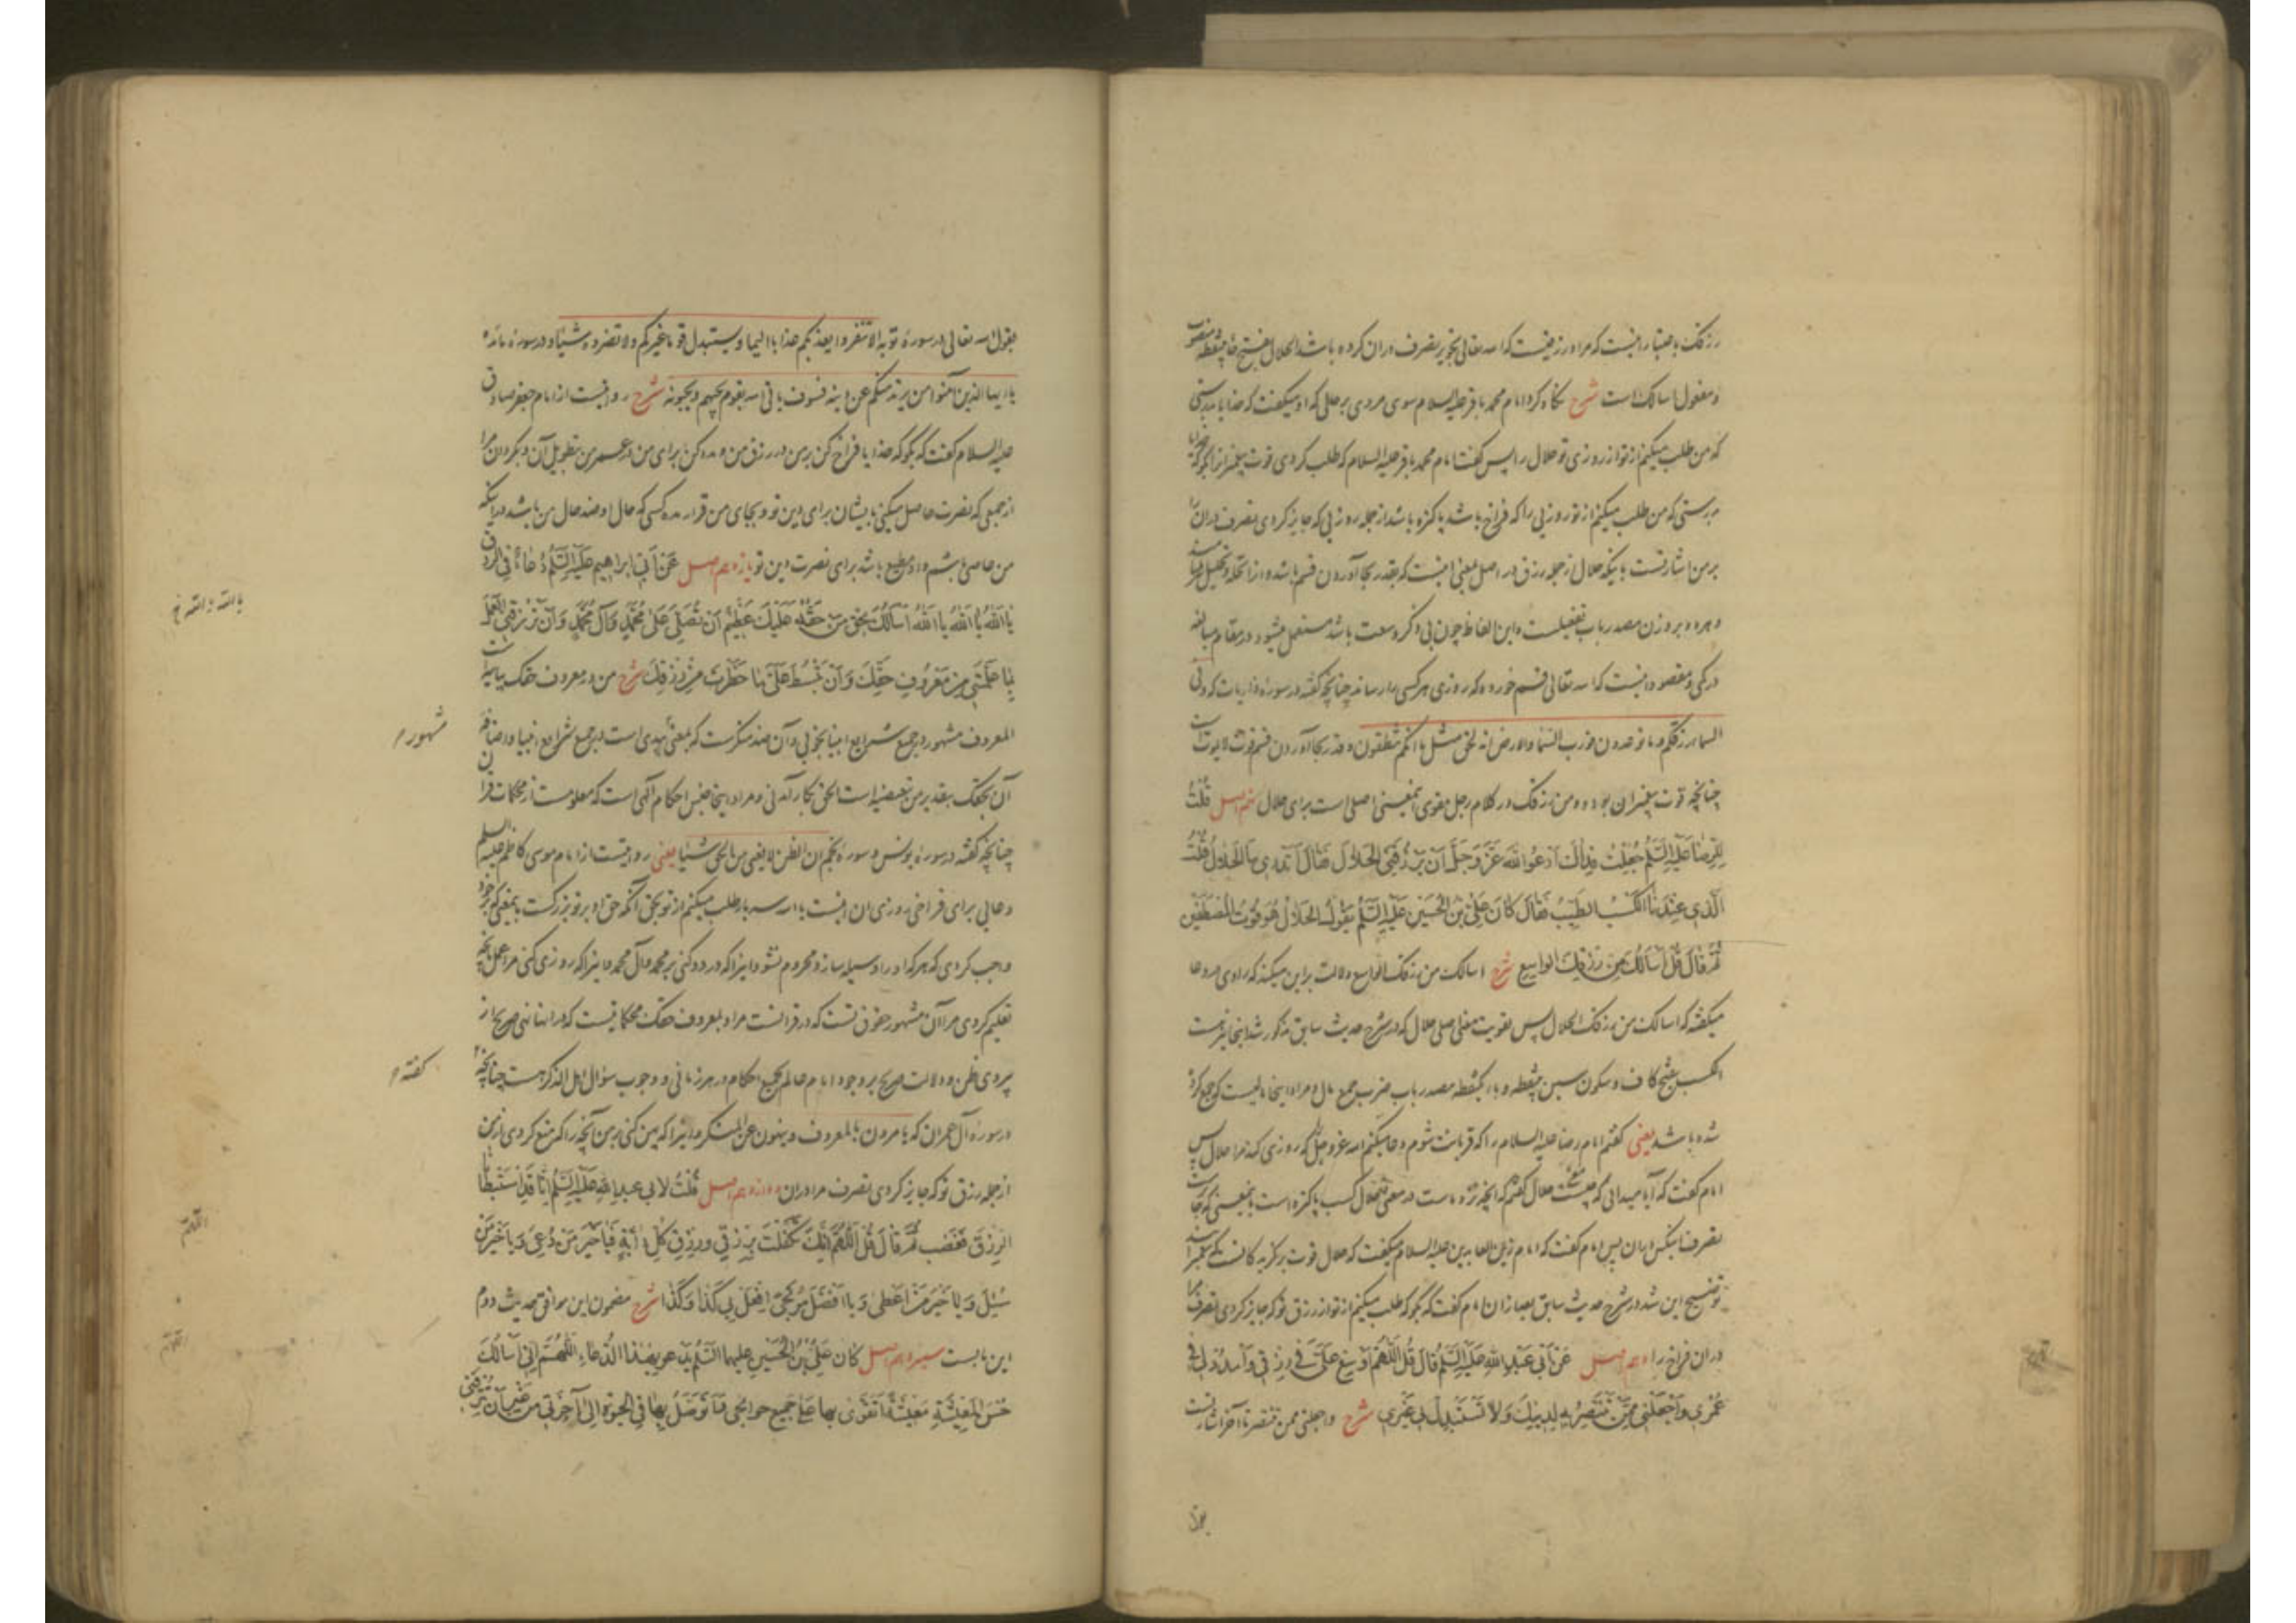 رزقک باعتبار اینست که مراد رزقیست که الله تعالی تجویز تصرف در آن کرده باشد الحلال بفتح حاء بینقطه
و مفعول اسالک است شرح نگاه کرد امام محمد باقر علیه السلام سوی مردی بر حالی که او میگفت که خدایا بدرستی
که من طلب میکنم از تو از روزی تو حلال را پس گفت امام محمد باقر علیه السلام که طلب کردی قوت پیغمبرانرا بگو که
بدرستی که من طلب میکنم از تو روزیی را که فراخ باشد پاکیزه باشد از جمله روزیی که جایز کردی تصرف در آن را
بر من اشارتست باینکه حلال از جمله رزق در اصل بمعنی اینست که بقدر بجا آوردن قسم باشد از تحله و تحلیل
و هر دو بر وزن مصدر باب تفعیلست و این الفاظ چون بی ذکر وسعت باشد مستعمل میشود در مقام مبالغه
در کمی و مقصود اینست که الله تعالی قسم خورده که روزی هر کسی را رساند چنانچه گفته در سوره ذاریات که وفی
السماء رزقکم وما توعدون فورب السماء والارض انه لحق مثل ما انکم تنطقون و قدر بجا آوردن قسم قوت لایموت
چنانچه قوت پیغمبران بوده و من رزقک در کلام رجل مقوی معنی اصلی است برای حلال نهم اصل قُلْتُ
لِلرِّضَا عَلَیْهِ السَّلَمُ جُعِلْتُ فِدَاکَ اُدْعُوا اللّٰهَ عَزَّ وَجَلَّ اَنْ یَرْزُقَنِیَ الْحَلَالَ فَقَالَ اَتَدْرِی مَا الْحَلَالُ قُلْتُ
الَّذِی عِنْدَنَا الْکَسْبُ الطَّیِّبُ فَقَالَ کَانَ عَلِیُّ بْنُ الْحُسَیْنِ عَلَیْهِ السَّلَمُ یَقُولُ الْحَلَالُ هُوَ قُوتُ الْمُصْطَفَیْنَ
ثُمَّ قَالَ قُلْ اَسْاَلُکَ مِنْ رِزْقِکَ الْوَاسِعِ شرح اسالک من رزقک الواسع دلالت بر این میکند که راوی در دعا
میگفته که اسالک من رزقک الحلال پس تقویت معنی اصلی حلال که در شرح حدیث سابق مذکور شد اینجا نیز هست
الکسب بفتح کاف و سکون سین بینقطه و باء یکنقطه مصدر باب ضرب جمع مال و مراد اینجا مالیست که جمع کرده
شده باشد یعنی گفتم امام رضا علیه السلام را که قربانت شوم دعا میکنم الله عز وجل را که روزی کند مرا حلال پس
امام گفت که آیا میدانی که چیست حلال گفتم که آنچه نزد ماست در معنی حلال کسب پاکیزه است بمعنی که
تصرف پس امام گفت که امام زین العابدین علیه السلام میگفت که حلال قوت برگزیدگانست
توضیح این شد در شرح حدیث سابق بعد از آن امام گفت که بگو که طلب میکنم از تو از رزق تو که جایز کردی تصرف مرا
در آن فراخ را دهم اصل عَنْ اَبِی عَبْدِ اللّٰهِ عَلَیْهِ السَّلَمُ قَالَ قُلِ اللّٰهُمَّ اَوْسِعْ عَلَیَّ فِی رِزْقِی وَامْدُدْ لِی فِی
عُمْرِی وَاجْعَلْنِی مِمَّنْ تَنْتَصِرُ بِهِ لِدِینِکَ وَلَا تَسْتَبْدِلْ بِی غَیْرِی شرح واجعلنی ممن تنتصر تا آخر اشارتست
بقول
بقول الله تعالی در سوره توبه الا تنفروا یعذبکم عذابا الیما ویستبدل قوما غیرکم ولا تضروه شیئا و در سوره مائده
یا ایها الذین آمنوا من یرتد منکم عن دینه فسوف یاتی الله بقوم یحبهم ویحبونه شرح روایتست از امام جعفر صادق
علیه السلام گفت که بگو که خدایا فراخ کن بر من در رزق من و مدد کن برای من در عمر من بطویل آن و بگردان مرا
از جمعی که نصرت حاصل میکنی بایشان برای دین تو و بجای من قرار مده کسی که حال او ضد حال من باشد در اینکه
من عاصی باشم و او مطیع باشد برای نصرت دین تو یازدهم اصل عَنْ اَبِی اِبْرَاهِیمَ عَلَیْهِ السَّلَمُ دُعَاءً فِی الرِّزْقِ
یَا اَللّٰهُ یَا اَللّٰهُ یَا اَللّٰهُ اَسْاَلُکَ بِحَقِّ مَنْ حَقُّهُ عَلَیْکَ عَظِیْمٌ اَنْ تُصَلِّیَ عَلَی مُحَمَّدٍ وَآلِ مُحَمَّدٍ وَاَنْ تَرْزُقَنِیَ الْعَمَلَ
یا الله یا الله خ
بِمَا عَلَّمْتَنِی مِنْ مَعْرِفَةِ حَقِّکَ وَاَنْ تَبْسُطَ عَلَیَّ مَا حَظَرْتَ مِنْ رِزْقِکَ شرح من در معروف حقک بیانیه است
المعروف مشهور در جمیع شرایع انبیا بخوبی و آن ضد منکرست که بمعنی بدی است در جمیع شرایع انبیا و اضافه
مشهور م
آن بحقک بتقدیر من تبعیضیه است الحق بکار آمدنی و مراد اینجا جنس احکام الهی است که معلومست از محکمات قرآن
چنانچه گفته در سوره یونس و سوره نجم ان الظن لا یغنی من الحق شیئا یعنی روایتست از امام موسی کاظم علیه السلم
دعایی برای فراخی روزی آن اینست یا الله سه بار طلب میکنم از تو بحق آنکه حق او بر تو بزرگست بمعنی که بر خود
واجب کردی که هر که او را وسیله سازد محروم نشود اینرا که درود کنی بر محمد و آل محمد و اینرا که روزی کنی مرا عمل بآنچه
تعلیم کردی مرا آن مشهور حقوق تست که در قرآنست مراد بمعروف حقک محکماتیست که در آنها نهی صریح از
پیروی ظن و دلالت صریح بر وجود امام عالم بجمیع احکام در هر زمانی و وجوب سؤال اهل الذکر هست چنانچه
گفته م
در سوره آل عمران که یامرون بالمعروف وینهون عن المنکر و اینرا که پهن کنی بر من آنچه را که منع کردی از من
از جمله رزق تو که جایز کردی تصرف مرا در آن دوازدهم اصل قُلْتُ لِاَبِی عَبْدِ اللّٰهِ عَلَیْهِ السَّلَمُ اِنَّا قَدِ اسْتَبْطَأْنَا
الرِّزْقَ فَغَضِبَ ثُمَّ قَالَ قُلِ اللّٰهُمَّ اِنَّکَ تَکَفَّلْتَ بِرِزْقِی وَرِزْقِ کُلِّ دَابَّةٍ فَیَا خَیْرَ مَنْ دُعِیَ وَیَا خَیْرَ مَنْ
سُئِلَ وَیَا خَیْرَ مَنْ اَعْطَی وَیَا اَفْضَلَ مُرْتَجًی اِفْعَلْ بِی کَذَا وَکَذَا شرح مضمون این موافق حدیث دوم
این بابست سیزدهم اصل کَانَ عَلِیُّ بْنُ الْحُسَیْنِ عَلَیْهِمَا السَّلَمُ یَدْعُو بِهٰذَا الدُّعَاءِ اَللّٰهُمَّ اِنِّی اَسْاَلُکَ
حُسْنَ الْمَعِیشَةِ مَعِیشَةً اَتَقَوَّی بِهَا عَلَی جَمِیعِ حَوَائِجِی وَاَتَوَصَّلُ بِهَا فِی الْحَیٰوةِ اِلَی آخِرَتِی مِنْ غَیْرِ اَنْ تُتْرِفَنِی